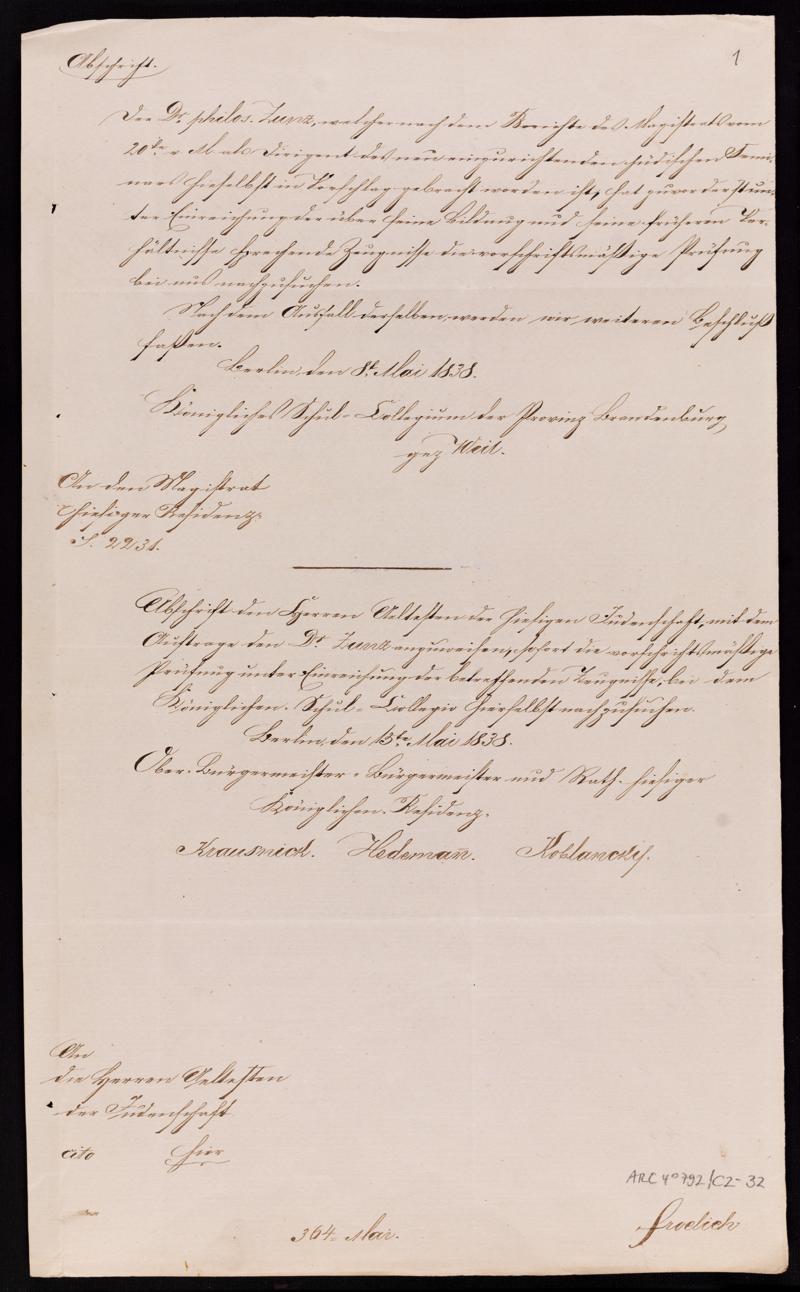 Abschrift.
1
Der Dr philos. Zunz, welcher nach dem Berichte des Magistrats vom
20ten v. M. als Dirigent des neu einzurichtenden jüdischen Semi-
nars hieselbst in Vorschlag gebracht worden ist, hat zuvorderst un-
ter Einreichung der über seine Bildung und seine früheren Ver-
hältnisse sprechende Zeugnisse die vorschriftsmäßige Prüfung
bei uns nachzusuchen.
Nach dem Ausfall derselben, werden wir weiteren Beschluß
faßen.
Berlin, den 8t Mai 1838.
Königliches Schul-Collegium der Provinz Brandenburg
gez Weil.
An den Magistrat
hiesiger Residenz.
S. 2231.
Abschrift den Herren Aeltesten der hiesigen Judenschaft, mit dem
Auftrage den Dr Zunz anzuweisen, sofort die vorschriftsmäßige
Prüfung unter Einreichung der betreffenden Zeugnisse, bei dem
Königlichen Schul-Collegio hierselbst nachzusuchen.
Berlin, den 15ten Mai 1838.
Ober-Bürgermeister, Bürgermeister und Rath hiesiger
Königlichen Residenz.
Krausnick. Hedeman̄. Koblanck
An
die Herren Aeltesten
der Judenschaft
cito hier
ARC 4° 792/C2-32
364. Mai.